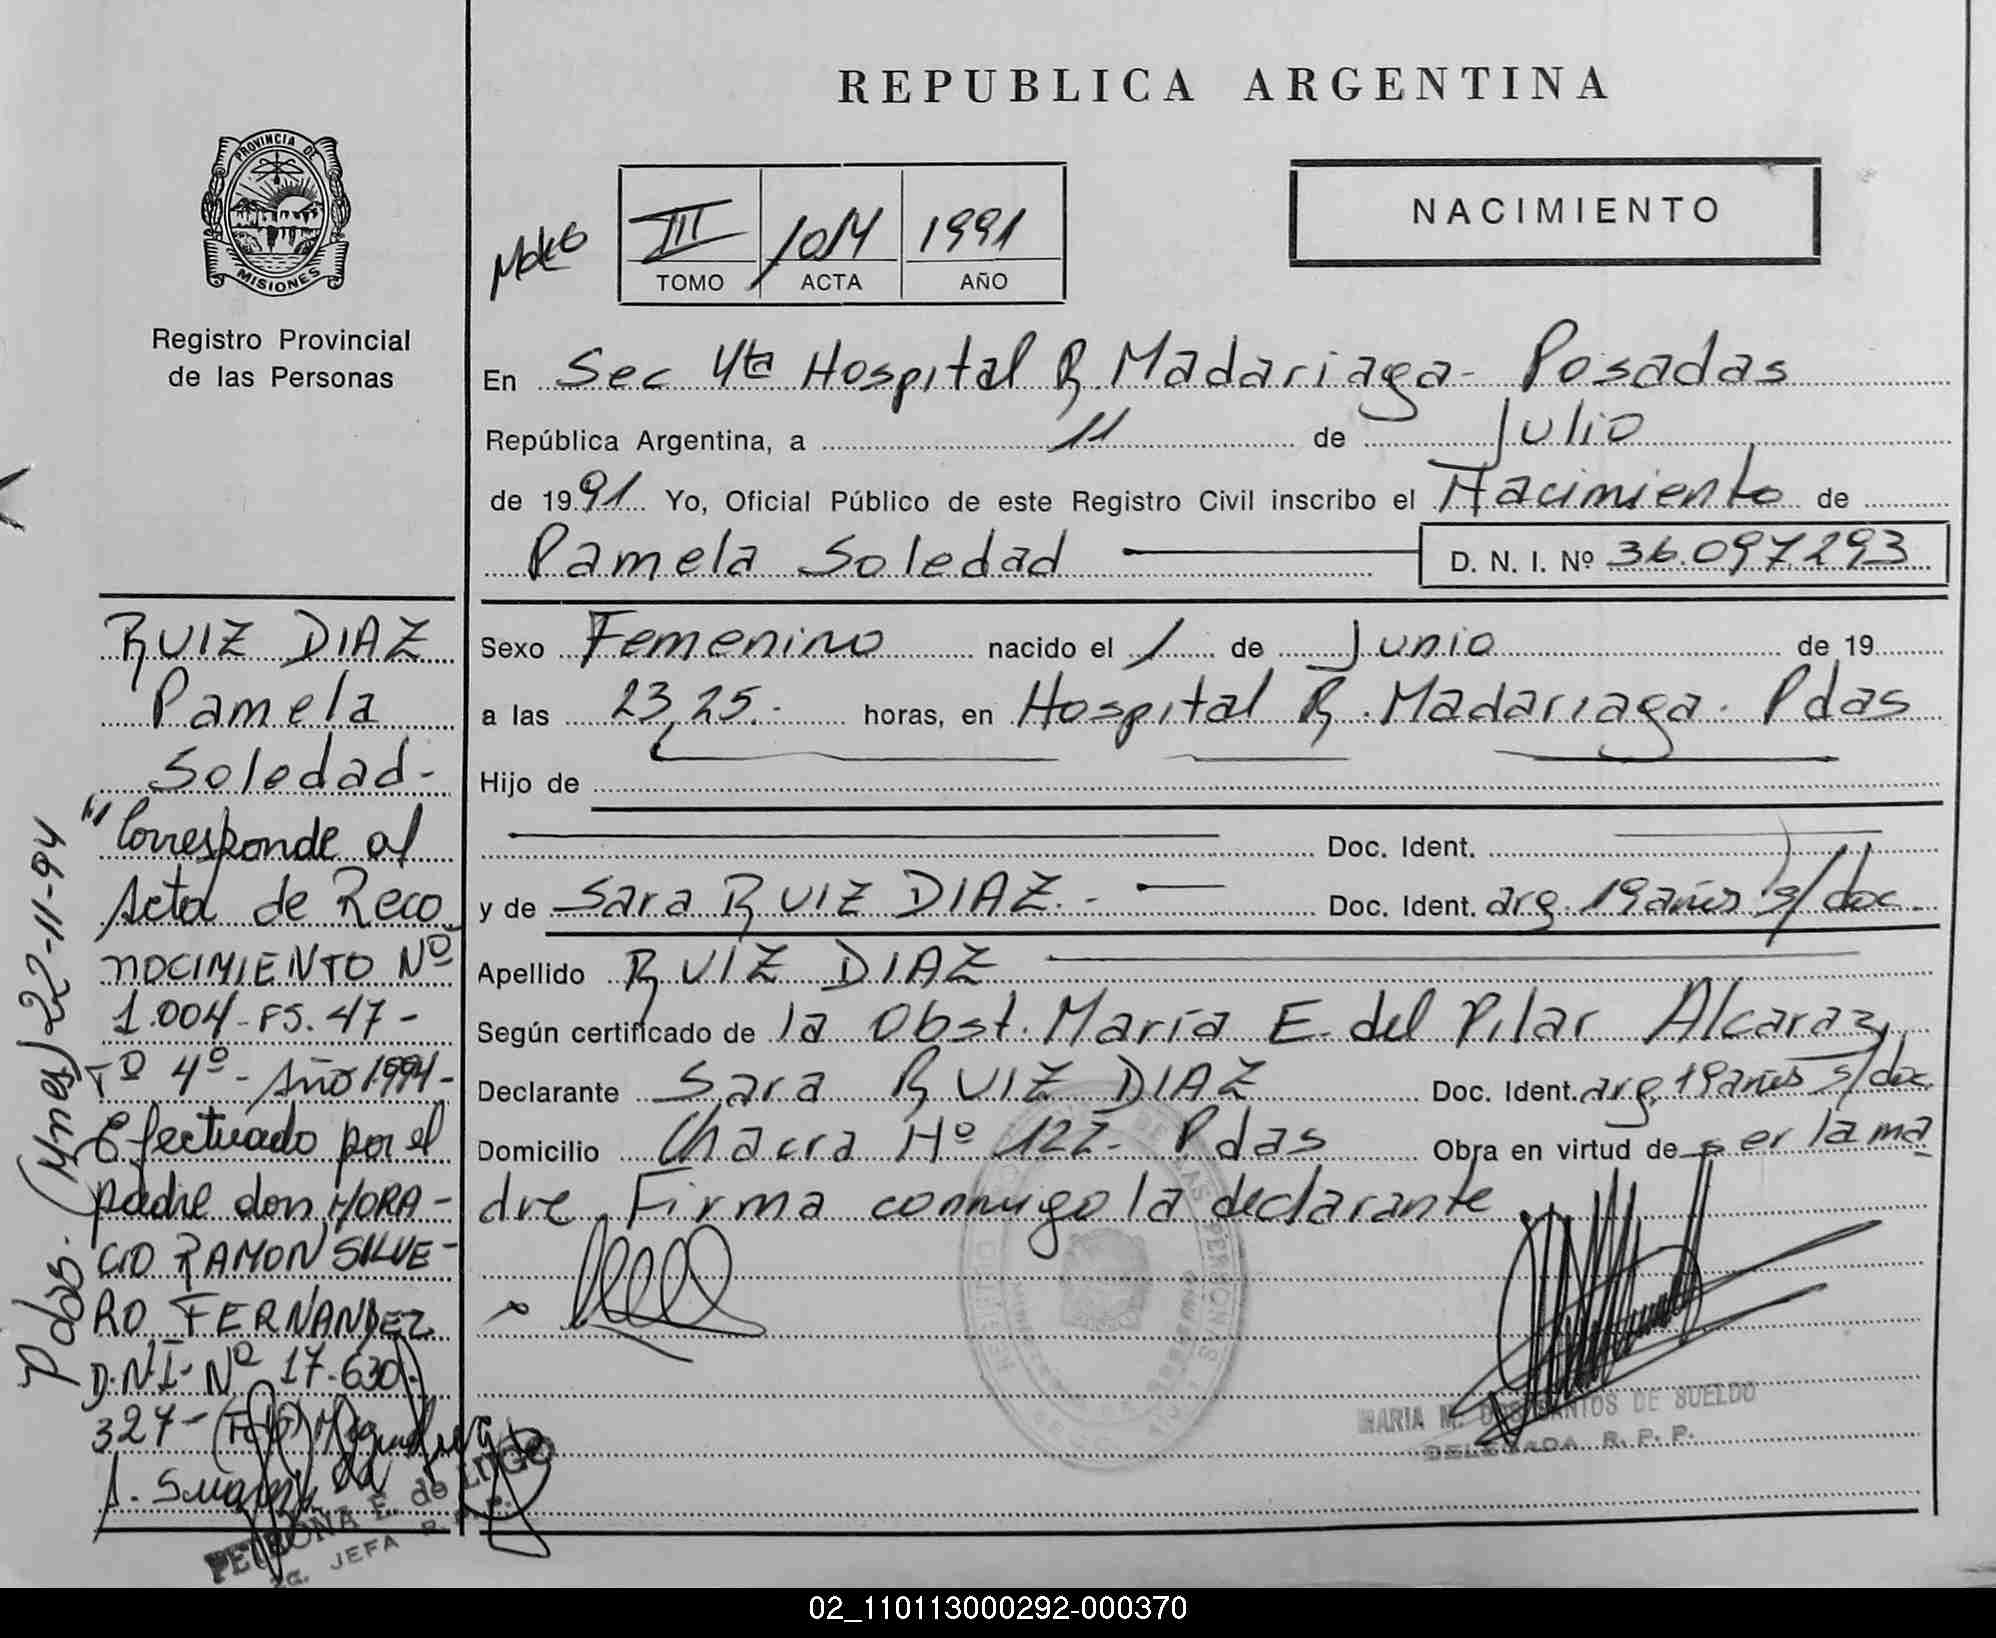 REPUBLICA ARGENTINA
PROVINCIA DE
MISIONES
Registro Provincial
de las Personas
III 1014 1991
TOMO ACTA AÑO
NACIMIENTO
En Sec 4ta Hospital R. Madariaga - Posadas
República Argentina, a 11 de Julio
de 1991 Yo, Oficial Público de este Registro Civil inscribo el Nacimiento de
Pamela Soledad D. N. I. Nº 36.097.293
Sexo Femenino nacido el 1 de Junio de 19
a las 23,25.- horas, en Hospital R. Madariaga. Pdas
Hijo de
Doc. Ident.
y de Sara RUIZ DIAZ.- Doc. Ident. arg. 19 años s/doc.
Apellido RUIZ DIAZ
Según certificado de la Obst. María E. del Pilar Alcaraz
Declarante Sara RUIZ DIAZ Doc. Ident. arg. 19 años s/doc.
Domicilio Chacra Nº 122- Pdas Obra en virtud de ser la ma
dre Firma conmigo la declarante
MARIA M. DOS SANTOS DE SUELDO
DELEGADA R. P. P.
RUIZ DIAZ
Pamela
Soledad-
"Corresponde al
Acta de Reco
NOCIMIENTO Nº
1.004-FS. 47-
Tº 4º- Año 1994-
Efectuado por el
padre don HORA-
CIO RAMON SILVE-
RO FERNANDEZ
D.N.I- Nº 17-630.
327-
PETRONA E. de LUGO
2a. JEFA R. P. P.
Pdas. (Mnes) 22-11-94
02_110113000292-000370